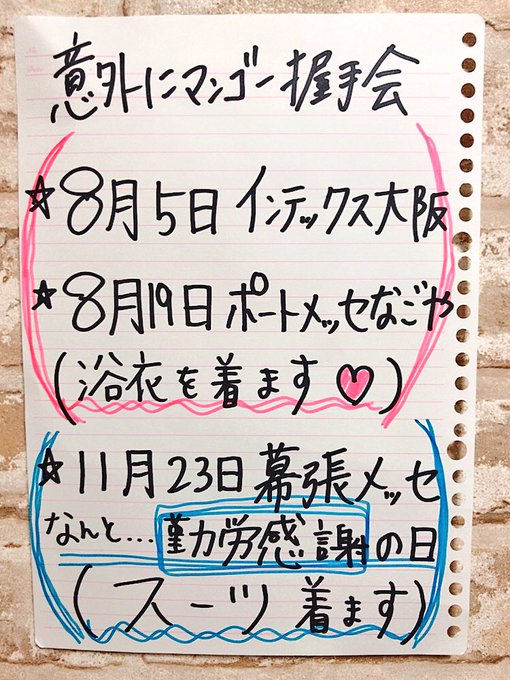 意外にマンゴー握手会
☆8月5日 インテックス大阪
☆8月19日 ポートメッセなごや
(浴衣を着ます♡)
☆11月23日 幕張メッセ
なんと…勤労感謝の日
(スーツ着ます)